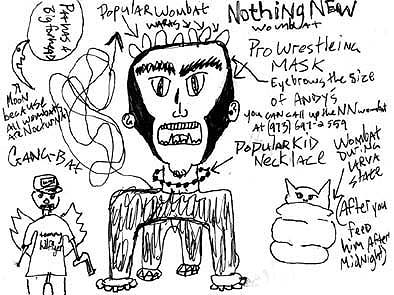 NOTHING NEW
Wombat
POPULAR WOMBAT
WARKS
Pro Wrestleing
MASK
Eyebrows the size
of ANDY'S
you can call up the NN wombat
AT (973) 697-2559
POPULAR KID
Necklace
A
MOON
because
All wombats
ARE NOCTURNAL
GANG-BAT
Wombat
During
LARVA
STAGE
(After you
Feed
him After
Midnight)